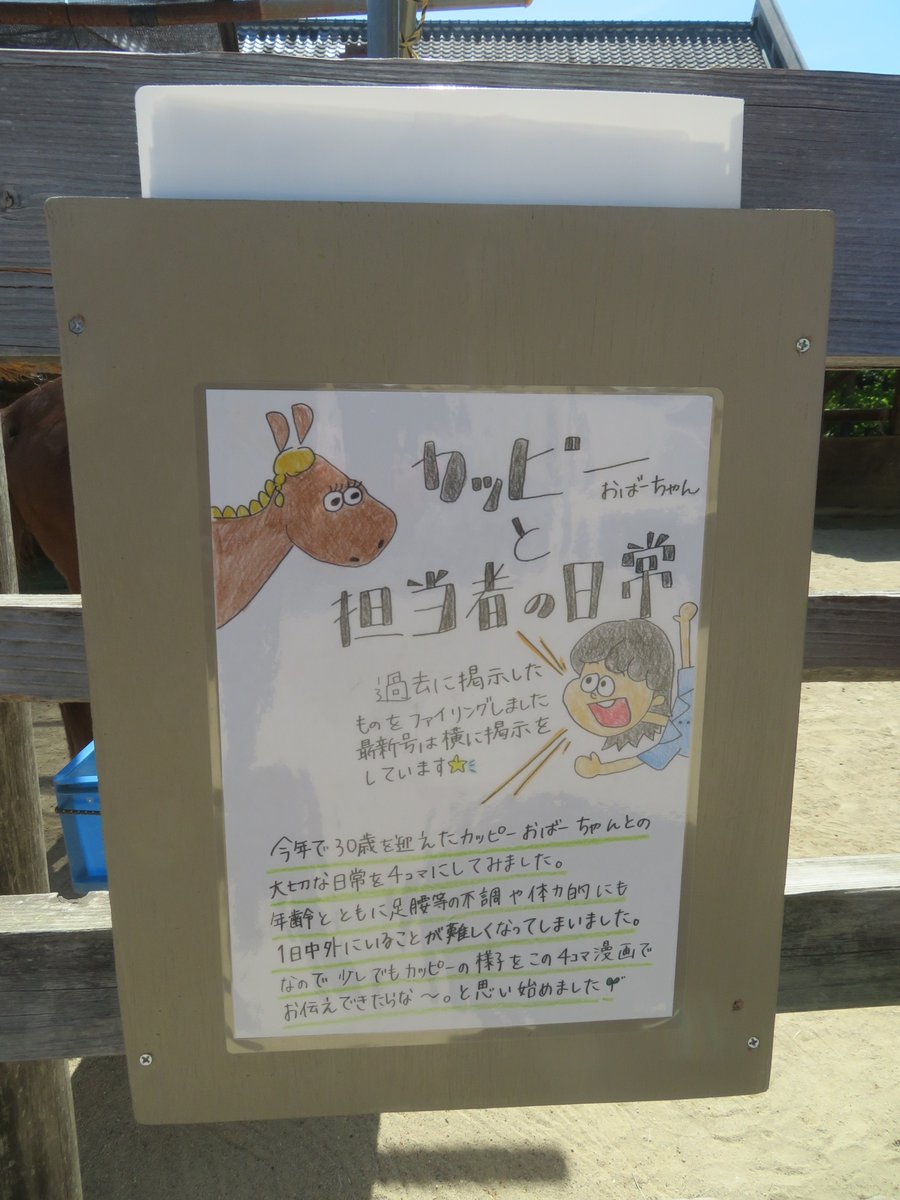 カッピー
おばーちゃん
と
担当者の日常
過去に掲示した
ものをファイリングしました
最新号は横に掲示を
しています
今年で30歳を迎えたカッピーおばーちゃんとの
大切な日常を4コマにしてみました。
年齢とともに足腰等の不調や体力的にも
1日中外にいることが難しくなってしまいました。
なので少しでもカッピーの様子をこの4コマ漫画で
お伝えできたらな〜。と思い始めました